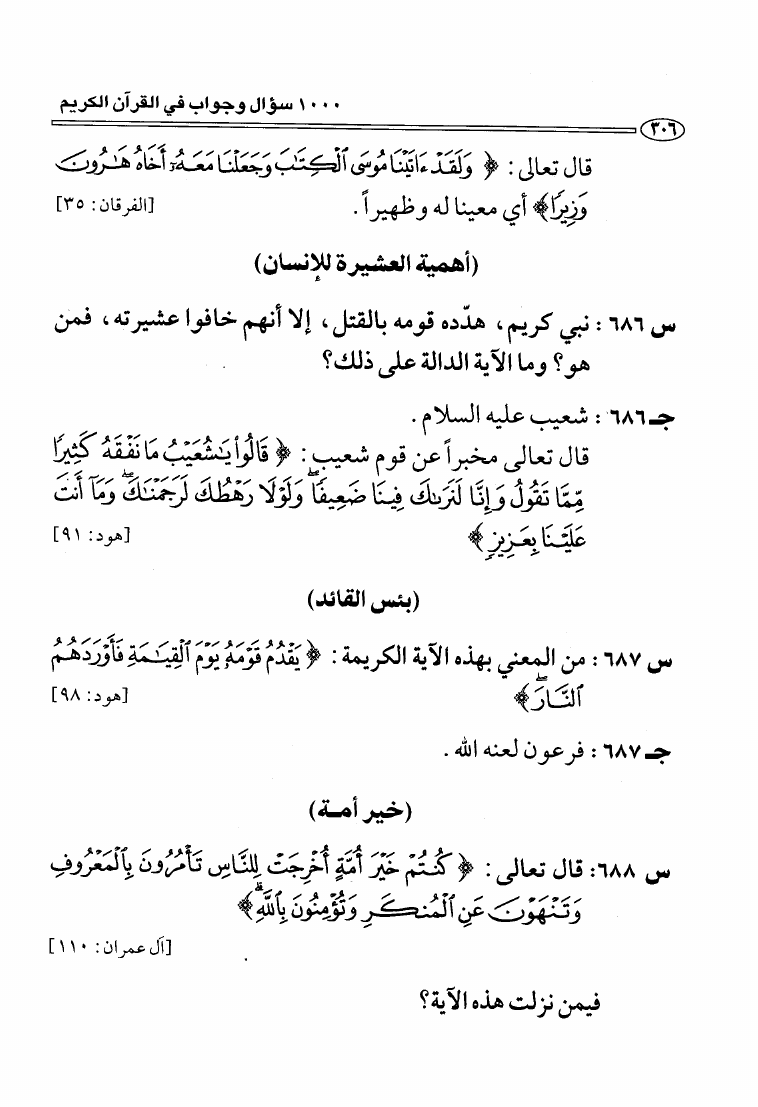 ١٠٠٠ سؤال وجواب في القرآن الكريم
٣٠٦
قال تعالى: ﴿ وَلَقَدْ ءَاتَيْنَا مُوسَى ٱلْكِتَٰبَ وَجَعَلْنَا مَعَهُۥٓ أَخَاهُ هَٰرُونَ
وَزِيرًا﴾ أي معينا له وظهيراً. [الفرقان: ٣٥]
(أهمية العشيرة للإنسان)
س ٦٨٦: نبي كريم، هدّده قومه بالقتل، إلا أنهم خافوا عشيرته، فمن
هو؟ وما الآية الدالة على ذلك؟
جـ ٦٨٦: شعيب عليه السلام.
قال تعالى مخبراً عن قوم شعيب: ﴿ قَالُوا۟ يَٰشُعَيْبُ مَا نَفْقَهُ كَثِيرًا
مِّمَّا تَقُولُ وَإِنَّا لَنَرَىٰكَ فِينَا ضَعِيفًا ۖ وَلَوْلَا رَهْطُكَ لَرَجَمْنَٰكَ ۖ وَمَآ أَنتَ
عَلَيْنَا بِعَزِيزٍ ﴾ [هود: ٩١]
(بئس القائد)
س ٦٨٧: من المعني بهذه الآية الكريمة: ﴿ يَقْدُمُ قَوْمَهُۥ يَوْمَ ٱلْقِيَٰمَةِ فَأَوْرَدَهُمُ
ٱلنَّارَ ۖ ﴾ [هود: ٩٨]
جـ ٦٨٧: فرعون لعنه الله.
(خير أمـة)
س ٦٨٨: قال تعالى: ﴿ كُنتُمْ خَيْرَ أُمَّةٍ أُخْرِجَتْ لِلنَّاسِ تَأْمُرُونَ بِٱلْمَعْرُوفِ
وَتَنْهَوْنَ عَنِ ٱلْمُنكَرِ وَتُؤْمِنُونَ بِٱللَّهِ ۗ ﴾
[آل عمران: ١١٠]
فيمن نزلت هذه الآية؟